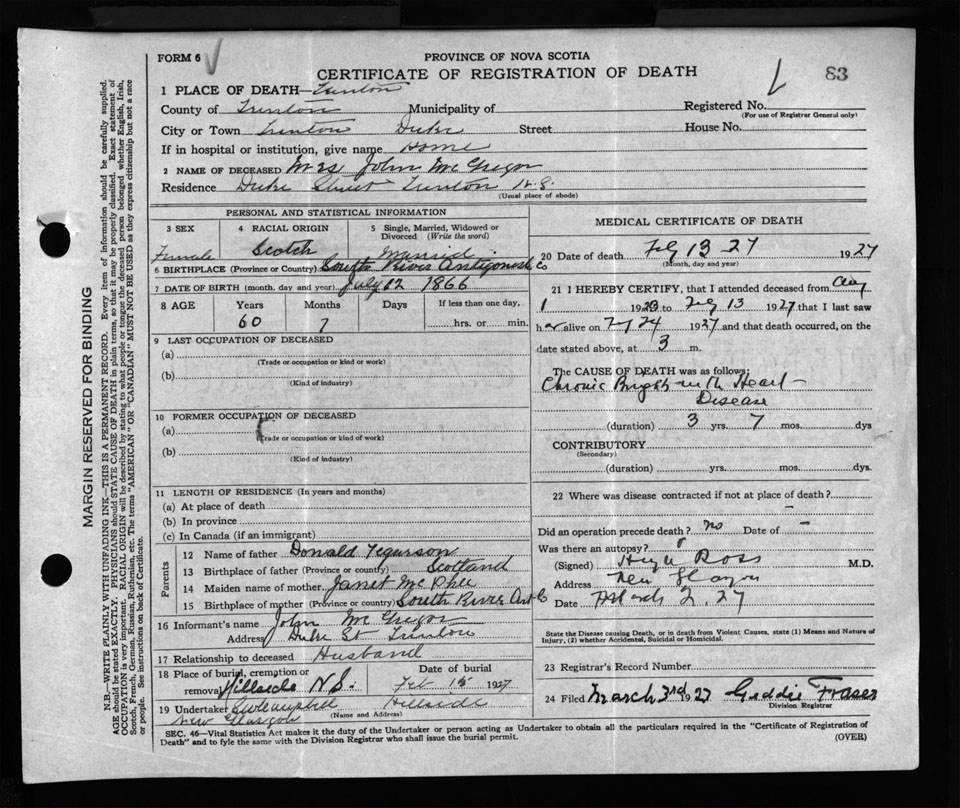 FORM 6
PROVINCE OF NOVA SCOTIA
CERTIFICATE OF REGISTRATION OF DEATH
83
1 PLACE OF DEATH—Trenton
County of Trenton Municipality of Registered No.
(For use of Registrar General only)
City or Town Trenton Duke Street House No.
If in hospital or institution, give name Home
2 NAME OF DECEASED Mrs John McGregor
Residence Duke Street Trenton N.S.
(Usual place of abode)
PERSONAL AND STATISTICAL INFORMATION
3 SEX 4 RACIAL ORIGIN 5 Single, Married, Widowed or Divorced (Write the word)
Female Scotch Married
6 BIRTHPLACE (Province or Country) South River Antigonish Co
7 DATE OF BIRTH (month, day and year) July 12 1866
8 AGE Years Months Days If less than one day,
60 7 hrs. or min.
9 LAST OCCUPATION OF DECEASED
(a)
(Trade or occupation or kind of work)
(b)
(Kind of industry)
10 FORMER OCCUPATION OF DECEASED
(a)
(Trade or occupation or kind of work)
(b)
(Kind of industry)
11 LENGTH OF RESIDENCE (In years and months)
(a) At place of death
(b) In province
(c) In Canada (if an immigrant)
Parents
12 Name of father Donald
13 Birthplace of father (Province or country) Scotland
14 Maiden name of mother Janet McPhee
15 Birthplace of mother (Province or country) South River Ant Co
16 Informant's name John McGregor
Address Duke St Trenton
17 Relationship to deceased Husband
18 Place of burial, cremation or removal Hillside N.S. Date of burial
Feb 1927
19 Undertaker Hillside
New Glasgow (Name and Address)
MEDICAL CERTIFICATE OF DEATH
20 Date of death Feb 13 27 1927
(Month, day and year)
21 I HEREBY CERTIFY, that I attended deceased from
1 192 to Feb 13 1927 that I last saw
her alive on 1927 and that death occurred, on the
date stated above, at 3 m.
The CAUSE OF DEATH was as follows:
Chronic Brights with Heart
Disease
(duration) 3 yrs. 7 mos. dys
CONTRIBUTORY
(Secondary)
(duration) yrs. mos. dys.
22 Where was disease contracted if not at place of death?
Did an operation precede death? no Date of –
Was there an autopsy?
(Signed) Hugh Ross M.D.
Address New Glasgow
Date March 2. 27
State the Disease causing Death, or in death from Violent Causes, state (1) Means and Nature of Injury, (2) whether Accidental, Suicidal or Homicidal.
23 Registrar's Record Number
24 Filed March 3rd 27 Geddie Fraser
Division Registrar
SEC. 46—Vital Statistics Act makes it the duty of the Undertaker or person acting as Undertaker to obtain all the particulars required in the "Certificate of Registration of
Death" and to fyle the same with the Division Registrar who shall issue the burial permit.
(OVER)
MARGIN RESERVED FOR BINDING
N.B.—WRITE PLAINLY WITH UNFADING INK—THIS IS A PERMANENT RECORD. Every item of information should be carefully supplied.
AGE should be stated EXACTLY. PHYSICIANS should STATE CAUSE OF DEATH in plain terms, so that it may be properly classified. Exact statement of
OCCUPATION is very important. RACIAL ORIGIN will be described by stating to what people or tongue the deceased person belonged whether English, Irish,
Scotch, French, German, Russian, Ruthenian, etc. The terms "AMERICAN" OR "CANADIAN" MUST NOT BE USED as they express citizenship but not a race
or people. See instructions on back of Certificate.